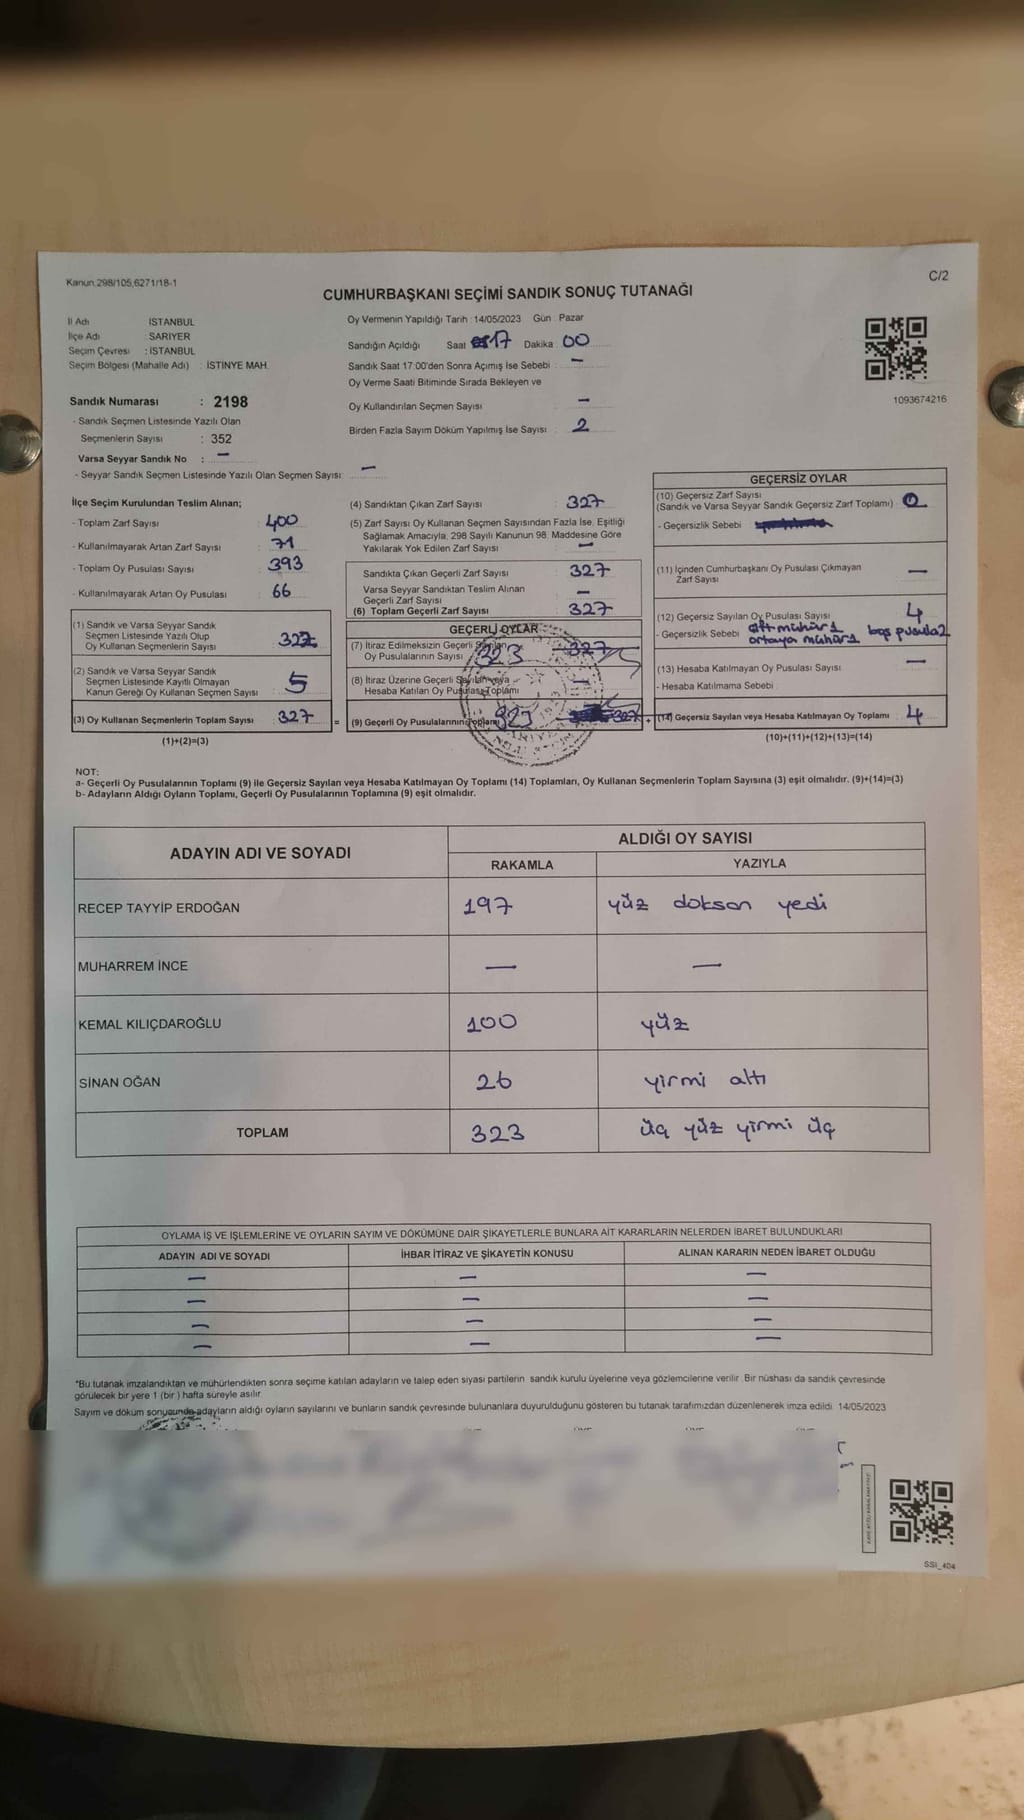 Kanun.298/105,6271/18-1
C/2
CUMHURBAŞKANI SEÇİMİ SANDIK SONUÇ TUTANAĞI
İl Adı İSTANBUL
İlçe Adı SARIYER
Seçim Çevresi : İSTANBUL
Seçim Bölgesi (Mahalle Adı) : İSTİNYE MAH.
Sandık Numarası : 2198
- Sandık Seçmen Listesinde Yazılı Olan
Seçmenlerin Sayısı : 352
Varsa Seyyar Sandık No : —
- Seyyar Sandık Seçmen Listesinde Yazılı Olan Seçmen Sayısı: —
Oy Vermenin Yapıldığı Tarih : 14/05/2023 Gün : Pazar
Sandığın Açıldığı Saat 17 Dakika : 00
Sandık Saat 17:00'den Sonra Açımış İse Sebebi : —
Oy Verme Saati Bitiminde Sırada Bekleyen ve
Oy Kullandırılan Seçmen Sayısı —
Birden Fazla Sayım Döküm Yapılmış İse Sayısı : 2
1093674216
İlçe Seçim Kurulundan Teslim Alınan;
- Toplam Zarf Sayısı : 400
- Kullanılmayarak Artan Zarf Sayısı : 71
- Toplam Oy Pusulası Sayısı : 393
- Kullanılmayarak Artan Oy Pusulası : 66
(1) Sandık ve Varsa Seyyar Sandık
Seçmen Listesinde Yazılı Olup
Oy Kullanan Seçmenlerin Sayısı : 322
(2) Sandık ve Varsa Seyyar Sandık
Seçmen Listesinde Kayıtlı Olmayan
Kanun Gereği Oy Kullanan Seçmen Sayısı : 5
(3) Oy Kullanan Seçmenlerin Toplam Sayısı : 327 =
(1)+(2)=(3)
(4) Sandıktan Çıkan Zarf Sayısı : 327
(5) Zarf Sayısı Oy Kullanan Seçmen Sayısından Fazla İse, Eşitliği
Sağlamak Amacıyla, 298 Sayılı Kanunun 98. Maddesine Göre
Yakılarak Yok Edilen Zarf Sayısı : —
Sandıkta Çıkan Geçerli Zarf Sayısı : 327
Varsa Seyyar Sandıktan Teslim Alınan
Geçerli Zarf Sayısı : —
(6) Toplam Geçerli Zarf Sayısı : 327
GEÇERLİ OYLAR
(7) İtiraz Edilmeksizin Geçerli Sayılan
Oy Pusulalarının Sayısı 323 327
(8) İtiraz Üzerine Geçerli Sayılan veya
Hesaba Katılan Oy Pusulası Toplamı —
(9) Geçerli Oy Pusulalarının Toplamı 323 327 +
GEÇERSİZ OYLAR
(10) Geçersiz Zarf Sayısı
(Sandık ve Varsa Seyyar Sandık Geçersiz Zarf Toplamı) : 0
- Geçersizlik Sebebi :
(11) İçinden Cumhurbaşkanı Oy Pusulası Çıkmayan
Zarf Sayısı —
(12) Geçersiz Sayılan Oy Pusulası Sayısı : 4
- Geçersizlik Sebebi çift mühür 1 boş pusula 2
ortaya mühür 1
(13) Hesaba Katılmayan Oy Pusulası Sayısı : —
- Hesaba Katılmama Sebebi :
(14) Geçersiz Sayılan veya Hesaba Katılmayan Oy Toplamı : 4
(10)+(11)+(12)+(13)=(14)
NOT:
a- Geçerli Oy Pusulalarının Toplamı (9) ile Geçersiz Sayılan veya Hesaba Katılmayan Oy Toplamı (14) Toplamları, Oy Kullanan Seçmenlerin Toplam Sayısına (3) eşit olmalıdır. (9)+(14)=(3)
b- Adayların Aldığı Oyların Toplamı, Geçerli Oy Pusulalarının Toplamına (9) eşit olmalıdır.
ADAYIN ADI VE SOYADI
ALDIĞI OY SAYISI
RAKAMLA YAZIYLA
RECEP TAYYİP ERDOĞAN 197 yüz doksan yedi
MUHARREM İNCE — —
KEMAL KILIÇDAROĞLU 100 yüz
SİNAN OĞAN 26 yirmi altı
TOPLAM 323 üç yüz yirmi üç
OYLAMA İŞ VE İŞLEMLERİNE VE OYLARIN SAYIM VE DÖKÜMÜNE DAİR ŞİKAYETLERLE BUNLARA AİT KARARLARIN NELERDEN İBARET BULUNDUKLARI
ADAYIN ADI VE SOYADI İHBAR İTİRAZ VE ŞİKAYETİN KONUSU ALINAN KARARIN NEDEN İBARET OLDUĞU
— — —
— — —
— — —
— — —
*Bu tutanak imzalandıktan ve mühürlendikten sonra seçime katılan adayların ve talep eden siyasi partilerin sandık kurulu üyelerine veya gözlemcilerine verilir. Bir nüshası da sandık çevresinde
görülecek bir yere 1 (bir ) hafta süreyle asılır.
Sayım ve döküm sonucunda adayların aldığı oyların sayılarını ve bunların sandık çevresinde bulunanlara duyurulduğunu gösteren bu tutanak tarafımızdan düzenlenerek imza edildi. 14/05/2023
SSI_404